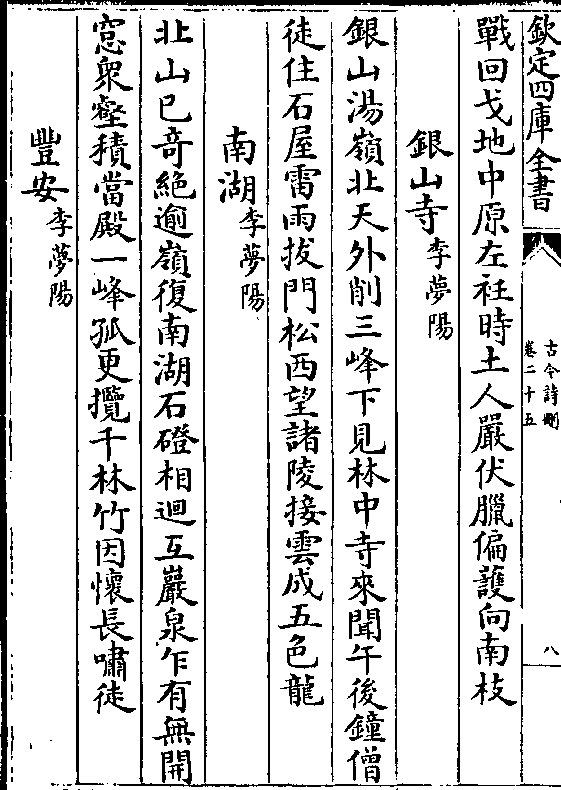 欽定四庫全書
古今詩刪
卷二十五
八
戰回戈地中原左衽時土人嚴伏臘偏護向南枝
銀山寺李夢陽
銀山湯嶺北天外削三峰下見林中寺來聞午後鐘僧
徒住石屋雷雨拔門松西望諸陵接雲成五色龍
南湖李夢陽
北山已竒絶逾嶺復南湖石磴相迴互巖泉乍有無開
窓衆壑積當殿一峰孤更攬千林竹因懷長嘯徒
豐安李夢陽